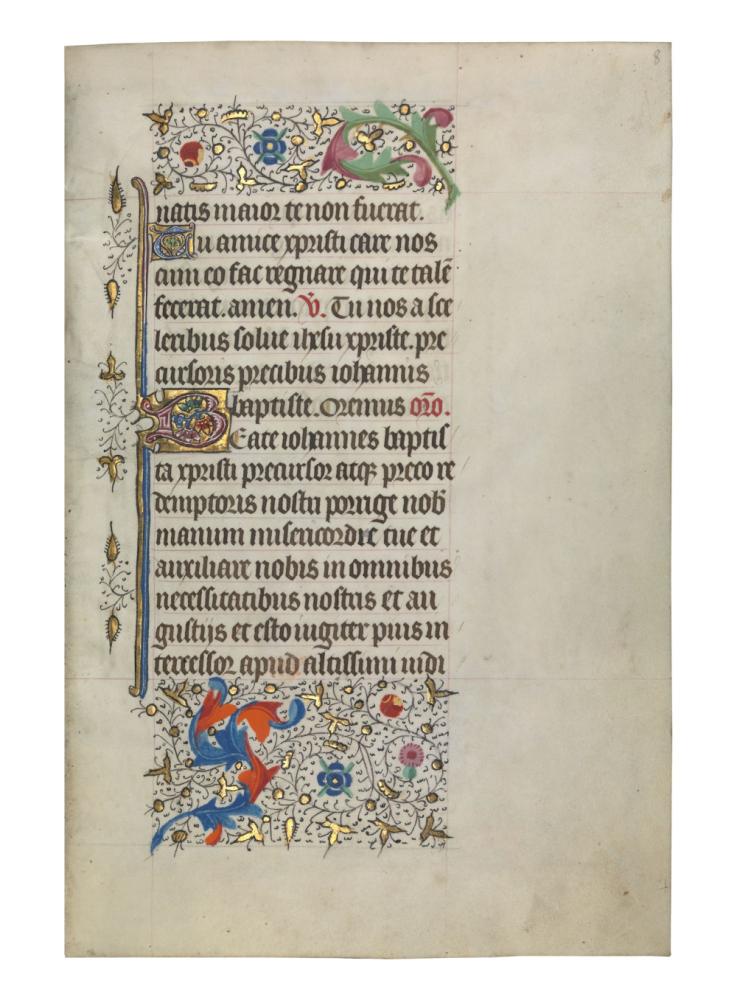 8
natis maior te non fuerat.
Tu amice xpristi care nos
cum eo fac regnare qui te talē
fecerat. amen. V̄. Tu nos a sce
leribus solue ihesu xpriste. pre
cursoris precibus iohannis
baptiste. Oremus orō.
Beate iohannes baptis
ta xpristi precursor atqꝫ preco re
demptoris nostri porrige nob̄
manum misericordie tue et
auxiliare nobis in omnibus
necessitatibus nostris et an
gustijs et esto iugiter pius in
tercessor apud altissimi iudi